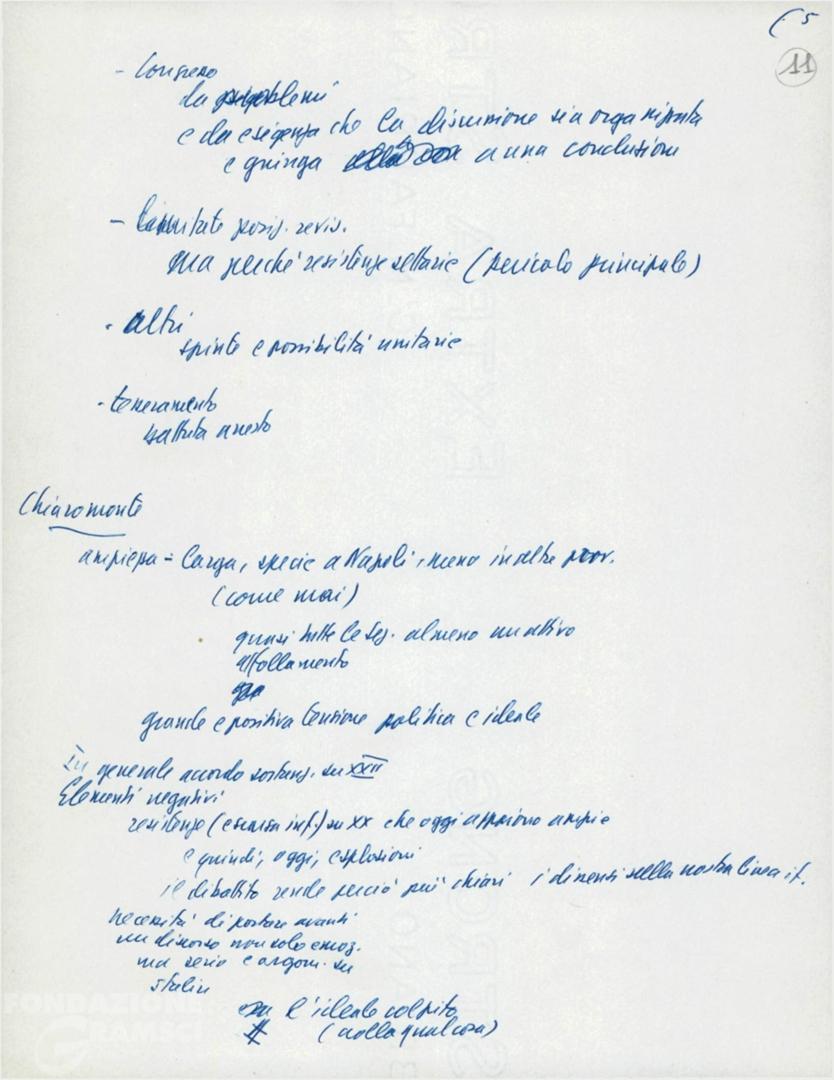 ( 5
11
- Congresso
da problemi
e da esigenza che la discussione sia organizzata
e giunga a una conclusione
- Limitate posiz. revis.
ma perché resistenze settarie (pericolo principale)
- altri
spinte e possibilità unitarie
- tesseramento
battuta arresto
Chiaromonte
ampiezza = larga, specie a Napoli, meno in altre prov.
(come mai)
quasi tutte le sez. almeno un attivo
affollamento
grande e positiva tensione politica e ideale
In generale accordo sostanz. su XXII
Elementi negativi
resistenze (e scarsa inf.) su XX che oggi appaiono ampie
e quindi, oggi, esplosioni
il dibattito rende perciò più chiari i dissensi sulla nostra linea it.
necessità di portare avanti
un discorso non solo emoz.
ma serio e argom. su
Stalin
l'ideale colpito
(crolla qualcosa)
FONDAZIONE
GRAMSCI